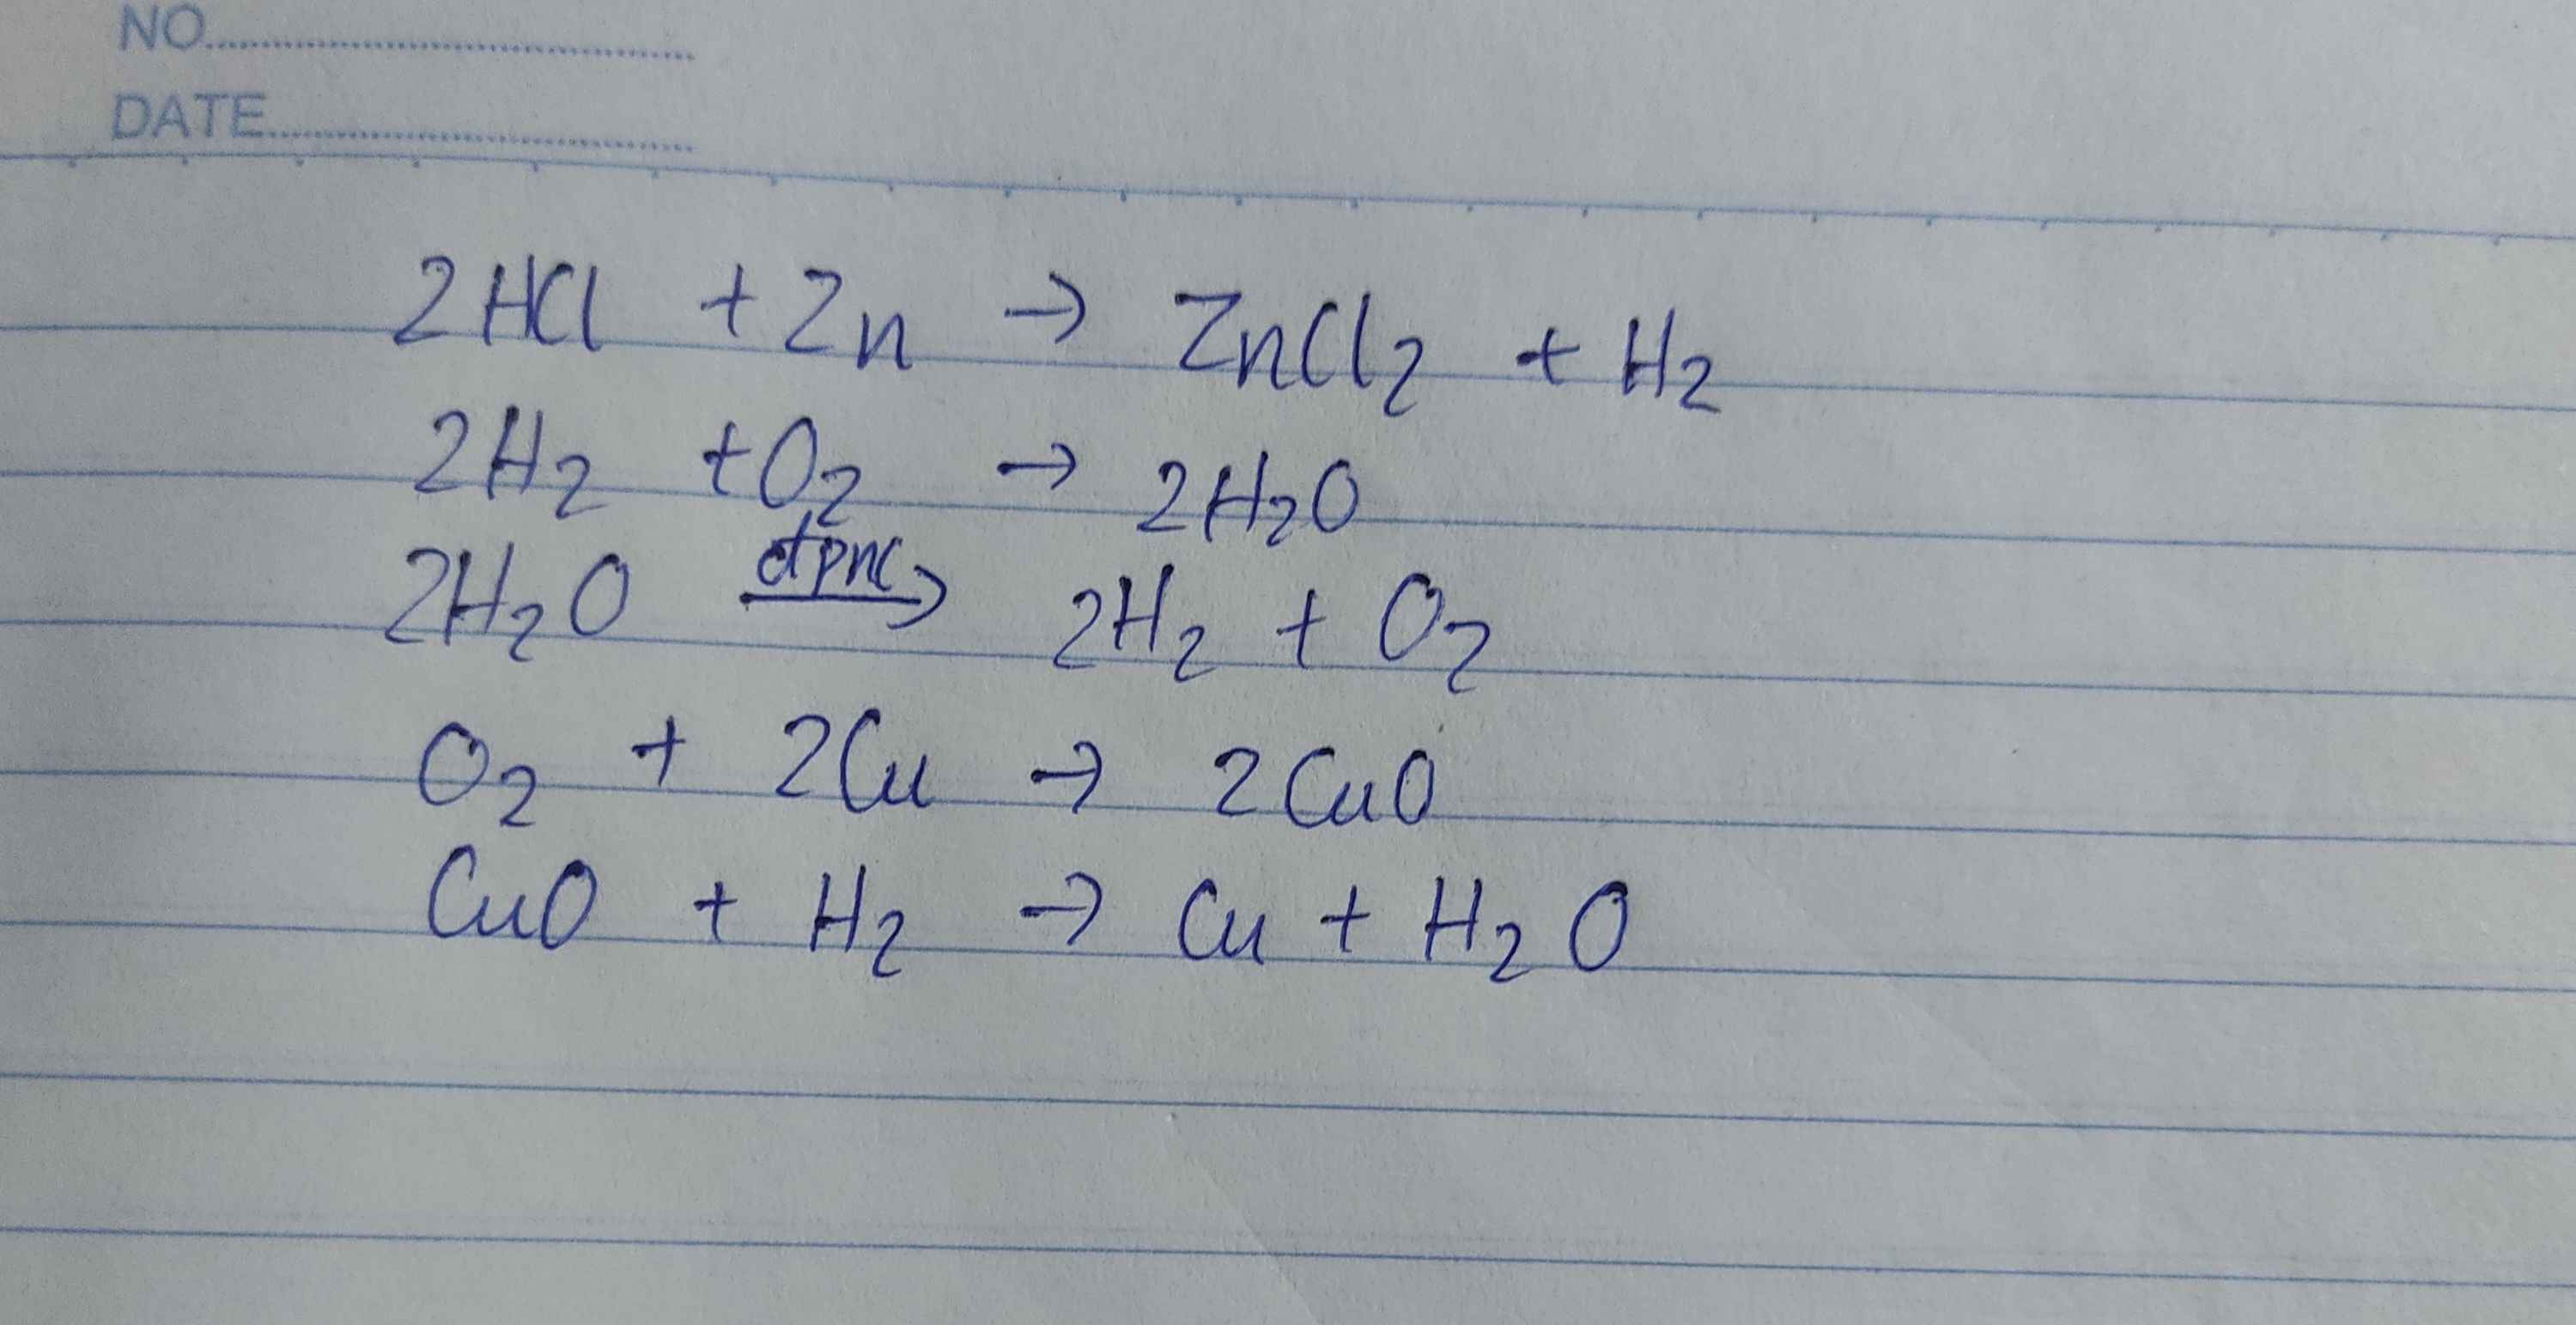 NO
DATE
2HCl + Zn → ZnCl₂ + H₂
2H₂ + O₂ → 2H₂O
2H₂O đpnc→ 2H₂ + O₂
O₂ + 2Cu → 2CuO
CuO + H₂ → Cu + H₂O